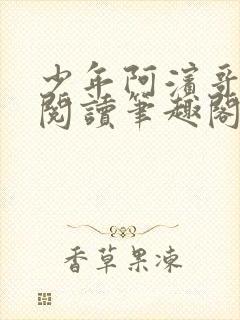 少年阿濱哥
閱讀筆趣閣
香草果凍